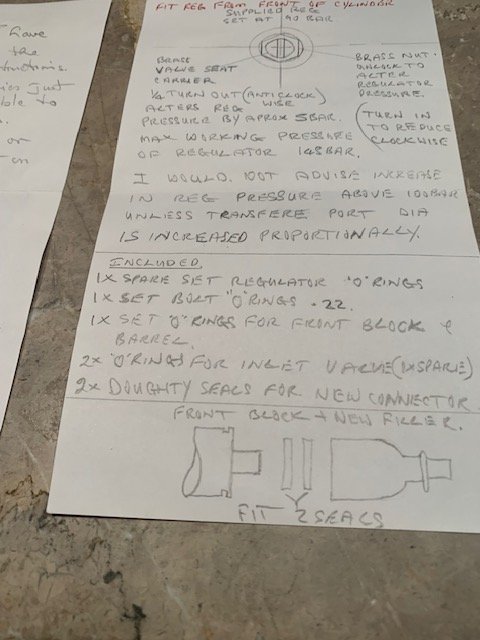 FIT REG FROM FRONT OF CYLINDER
SUPPLIED REG
SET AT 90 BAR
BRASS
VALVE SEAT
CARRIER
BRASS NUT.
UNLOCK TO
ALTER
REGULATOR
PRESSURE.
1/4 TURN OUT (ANTICLOCK)
WISE
ALTERS REG
PRESSURE BY APROX 5BAR.
(TURN IN
TO REDUCE
CLOCKWISE
MAX WORKING PRESSURE
OF REGULATOR 145BAR.
I WOULD. NOT ADVISE INCREASE
IN REG PRESSURE ABOVE 100BAR
UNLESS TRANSFERE PORT DIA
IS INCREASED PROPORTIONALLY.
INCLUDED.
1X SPARE SET REGULATOR "O" RINGS
1X SET BOLT "O" RINGS .22.
1X SET "O" RINGS FOR FRONT BLOCK &
BARREL.
2x "O" RINGS FOR INLET VALVE (1XSPARE)
2x DOUGHTY SEALS FOR NEW CONNECTOR
FRONT BLOCK + NEW FILLER.
FIT 2 SEALS
have
the
just
to
or